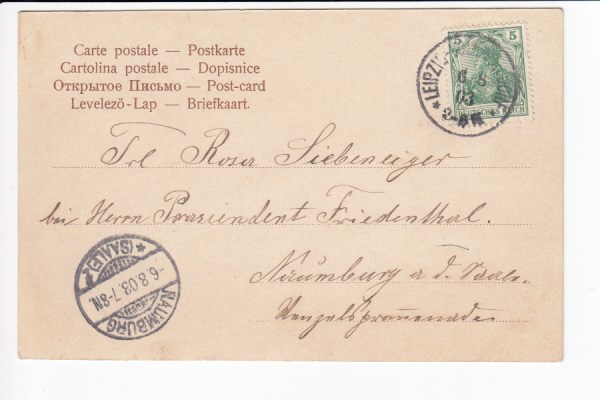 Carte postale — Postkarte
Cartolina postale — Dopisnice
Открытое Письмо — Post-card
Levelező-Lap — Briefkaart.
5 5
* LEIPZIG
6 8
03
DEUTSCHES REICH
Frl Rosa Siebeneiger
bei Herrn Praesiendent Friedenthal.
Naumburg a d. Saale.
Wenzelspromenade.
* (SAALE)
-6.8.03.7-8N.
NAUMBURG